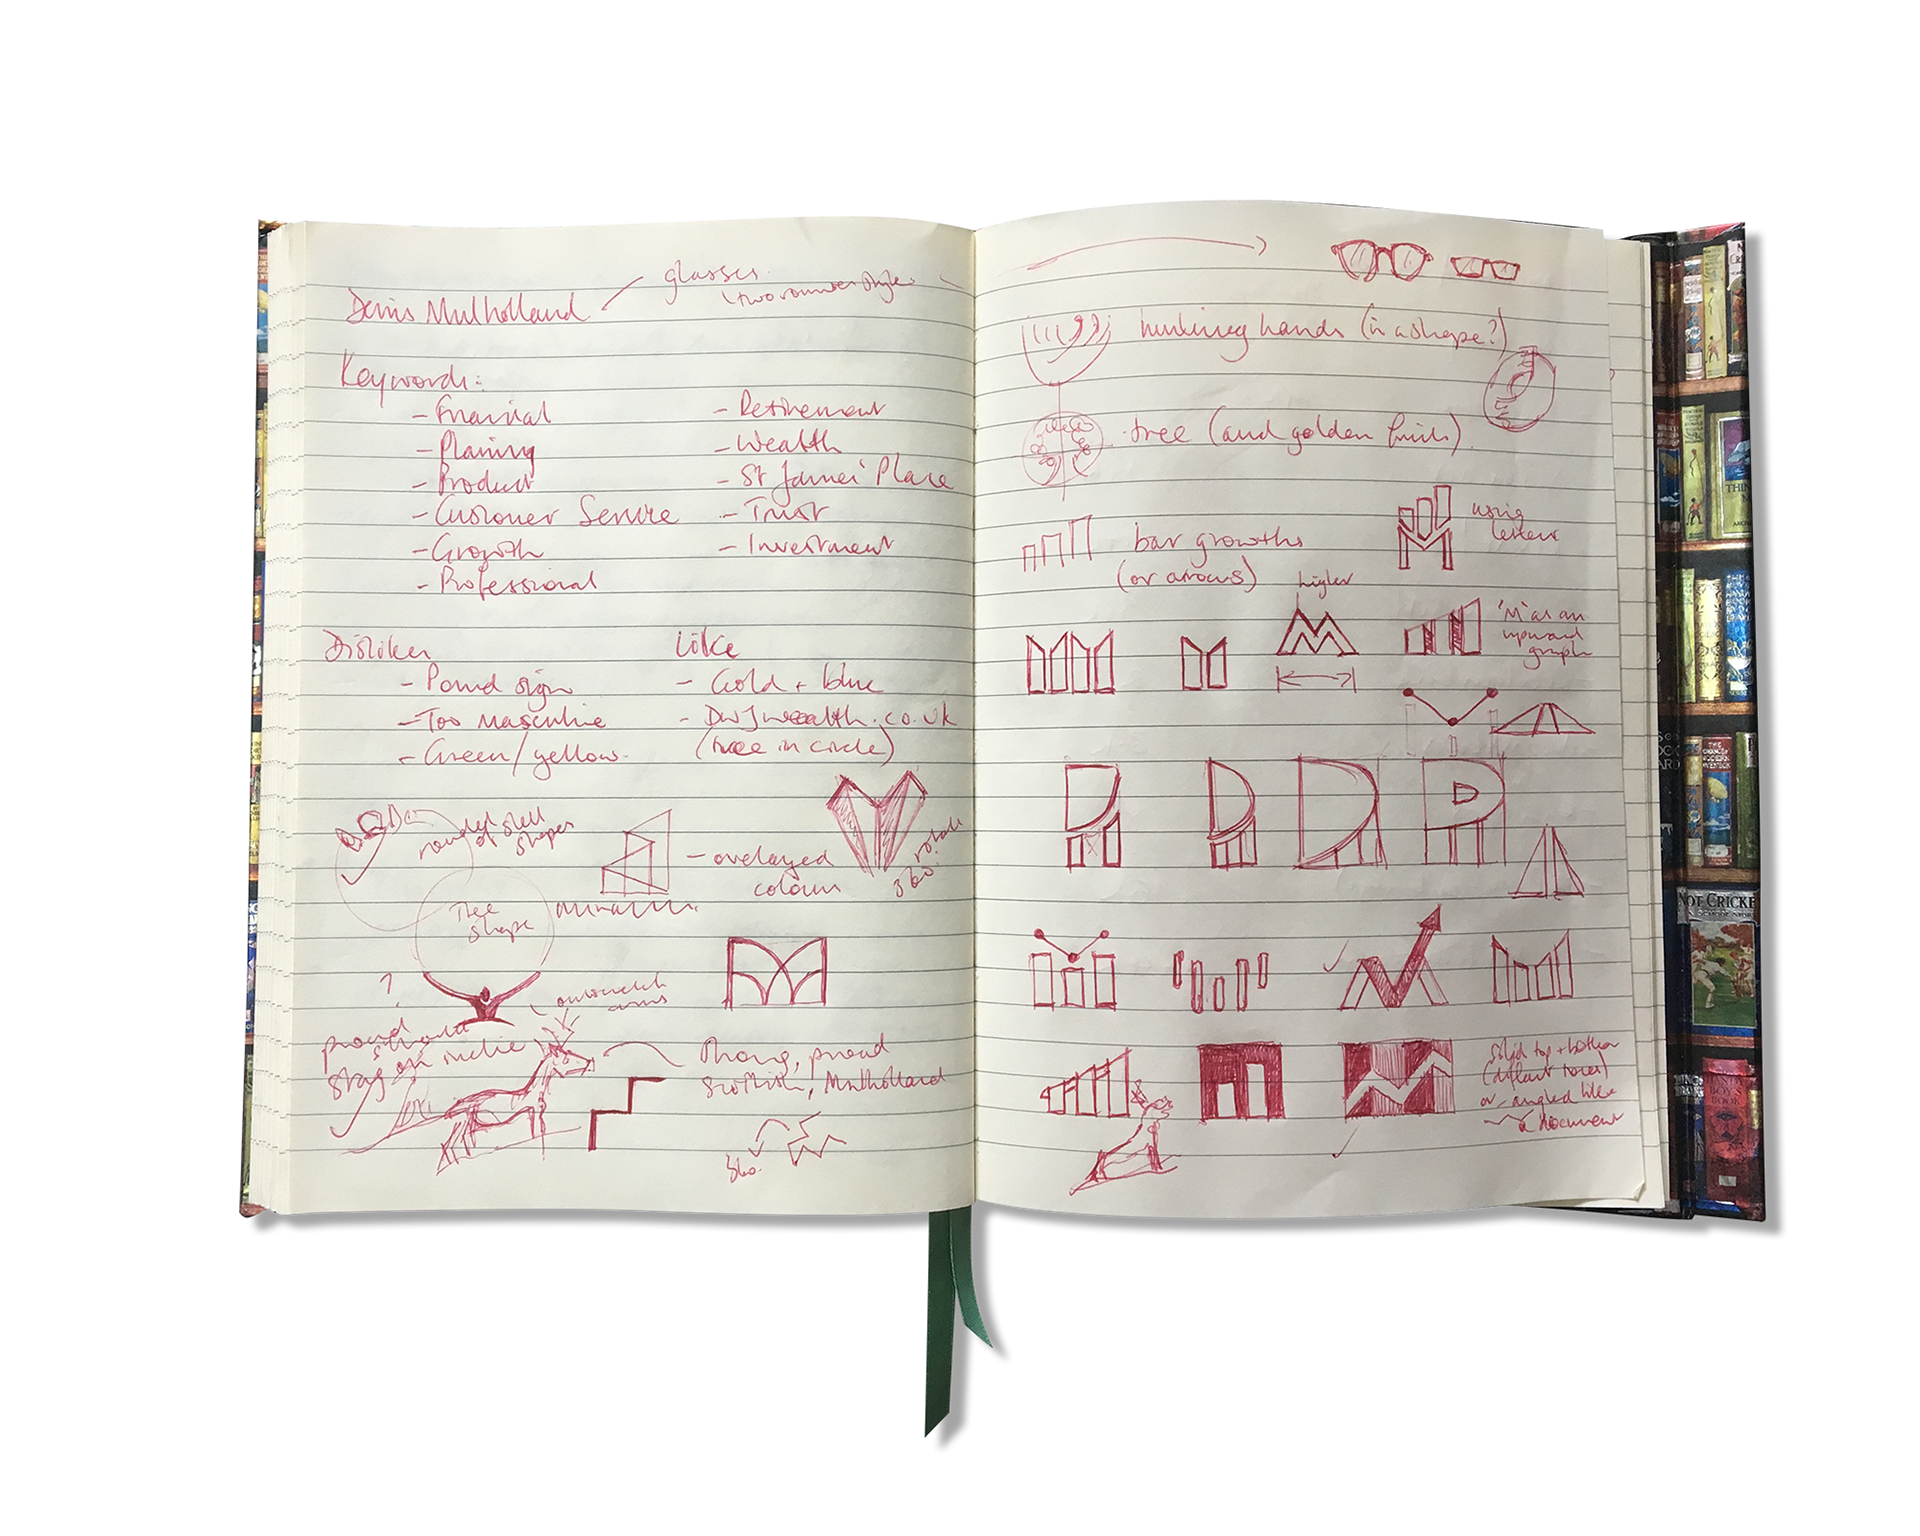 glasses
Denis Mulholland
Keywords:
- Financial
- Planing
- Product
- Customer Service
- Growth
- Professional
- Retirement
- Wealth
- St James' Place
- Trust
- Investment
Dislikes
- Pound sign
- Too masculine
- Green/yellow
Like
- Gold + blue
- DWJwealth.co.uk
(tree in circle)
rounded
shapes
- overlayed
colours
rotate
360
Tree
shape
?
outstretch
arms
proud
stag on incline
strong, proud
Scottish, Mulholland
360
hands (in a shape?)
tree (and golden fruits)
bar growths
(or arrows)
using
letters
higher
'M' as an
upward
graph
solid top + bottom
or angled like
a document
NOT CRICKET